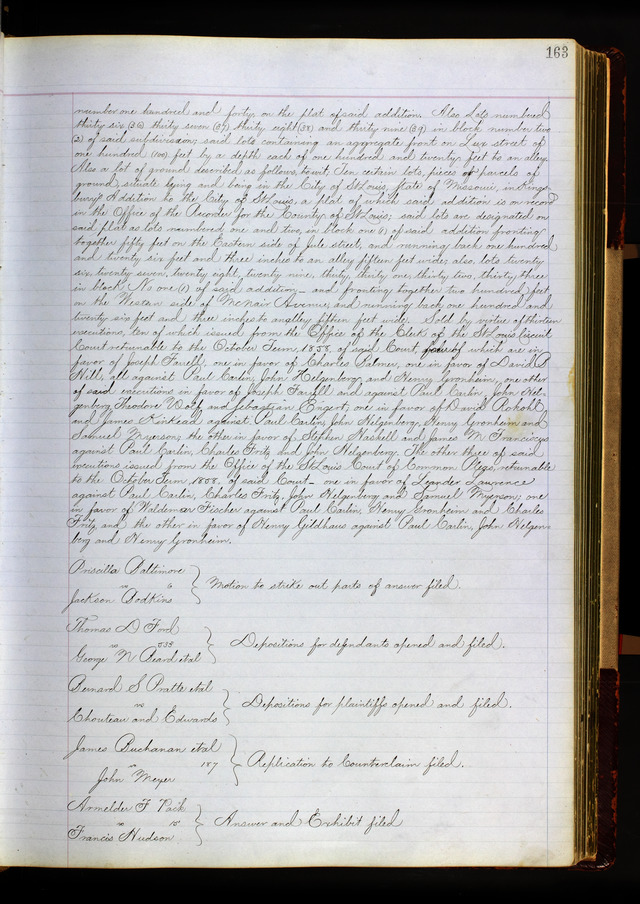 163
number one hundred and forty, on the plat of said addition. Also Lots numbered
thirty six (36) thirty seven (37) thirty eight (38) and thirty nine (39) in block number two
(2) of said subdivision; said lots containing an aggregate front on Lux street of
one hundred (100) feet by a depth each of one hundred and twenty feet to an alley.
Also a lot of ground described as follows, to wit, Ten certain lots, pieces or parcels of
ground, situate lying and being in the City of St Louis, State of Missouri, in Kings-
bury's Addition to the City of St Louis, a plat of which said addition is on record
in the Office of the Recorder for the County of St Louis; said lots are designated on
said plat as lots numbered one and two, in block one (1) of said addition fronting
together fifty feet on the Eastern side of street, and running back one hundred
and twenty six feet and three inches to an alley fifteen feet wide; also, lots twenty
six, twenty seven, twenty eight, twenty nine, thirty, thirty one, thirty two, thirty three
in block No one (1) of said addition — and fronting together two hundred feet
on the Western side of McNair Avenue, and running back one hundred and
twenty six feet and three inches to an alley fifteen feet wide. Sold by virtue of thirteen
executions, ten of which issued from the Office of the Clerk of the St Louis Circuit
Court returnable to the October Term, 1858, of said Court, four of which are in
favor of Joseph Farrell; one in favor of Charles Palmer, one in favor of David D
Hill, all against Paul Carlin, John Helgenberg and Henry Gronheim, one other
of said executions in favor of Joseph Farrell and against Paul Carlin, John Hel-
genberg, Theodore Wolf and Sebastian Engert, one in favor of David Rokohl
and James Kinkead against Paul Carlin, John Helgenberg, Henry Gronheim and
Samuel Myerson, the other in favor of Stephen Haskell and James M Franciscus
against Paul Carlin, Charles Fritz, and John Helgenberg. The other three of said
executions issued from the Office of the St Louis Court of Common Pleas, returnable
to the October Term, 1858, of said Court — one in favor of Leander Lawrence
against Paul Carlin, Charles Fritz, John Helgenberg and Samuel Myerson; one
in favor of Waldemar Fischer against Paul Carlin, Henry Gronheim and Charles
Fritz, and the other in favor of Henry Gildhaus against Paul Carlin, John Helgen-
berg and Henry Gronheim.
Priscilla Baltimore
vs 6
Jackson Bodkins } Motion to strike out parts of answer filed.
Thomas D Ford
vs 533
George N Beard et al } Depositions for defendants opened and filed.
Bernard S Pratte et al
vs
Chouteau and Edwards } Depositions for plaintiffs opened and filed.
James Buchanan et al
vs 187
John Meyer } Replication to Counterclaim filed.
Armelder F Pack
vs 15
Francis Hudson } Answer and Exhibit filed